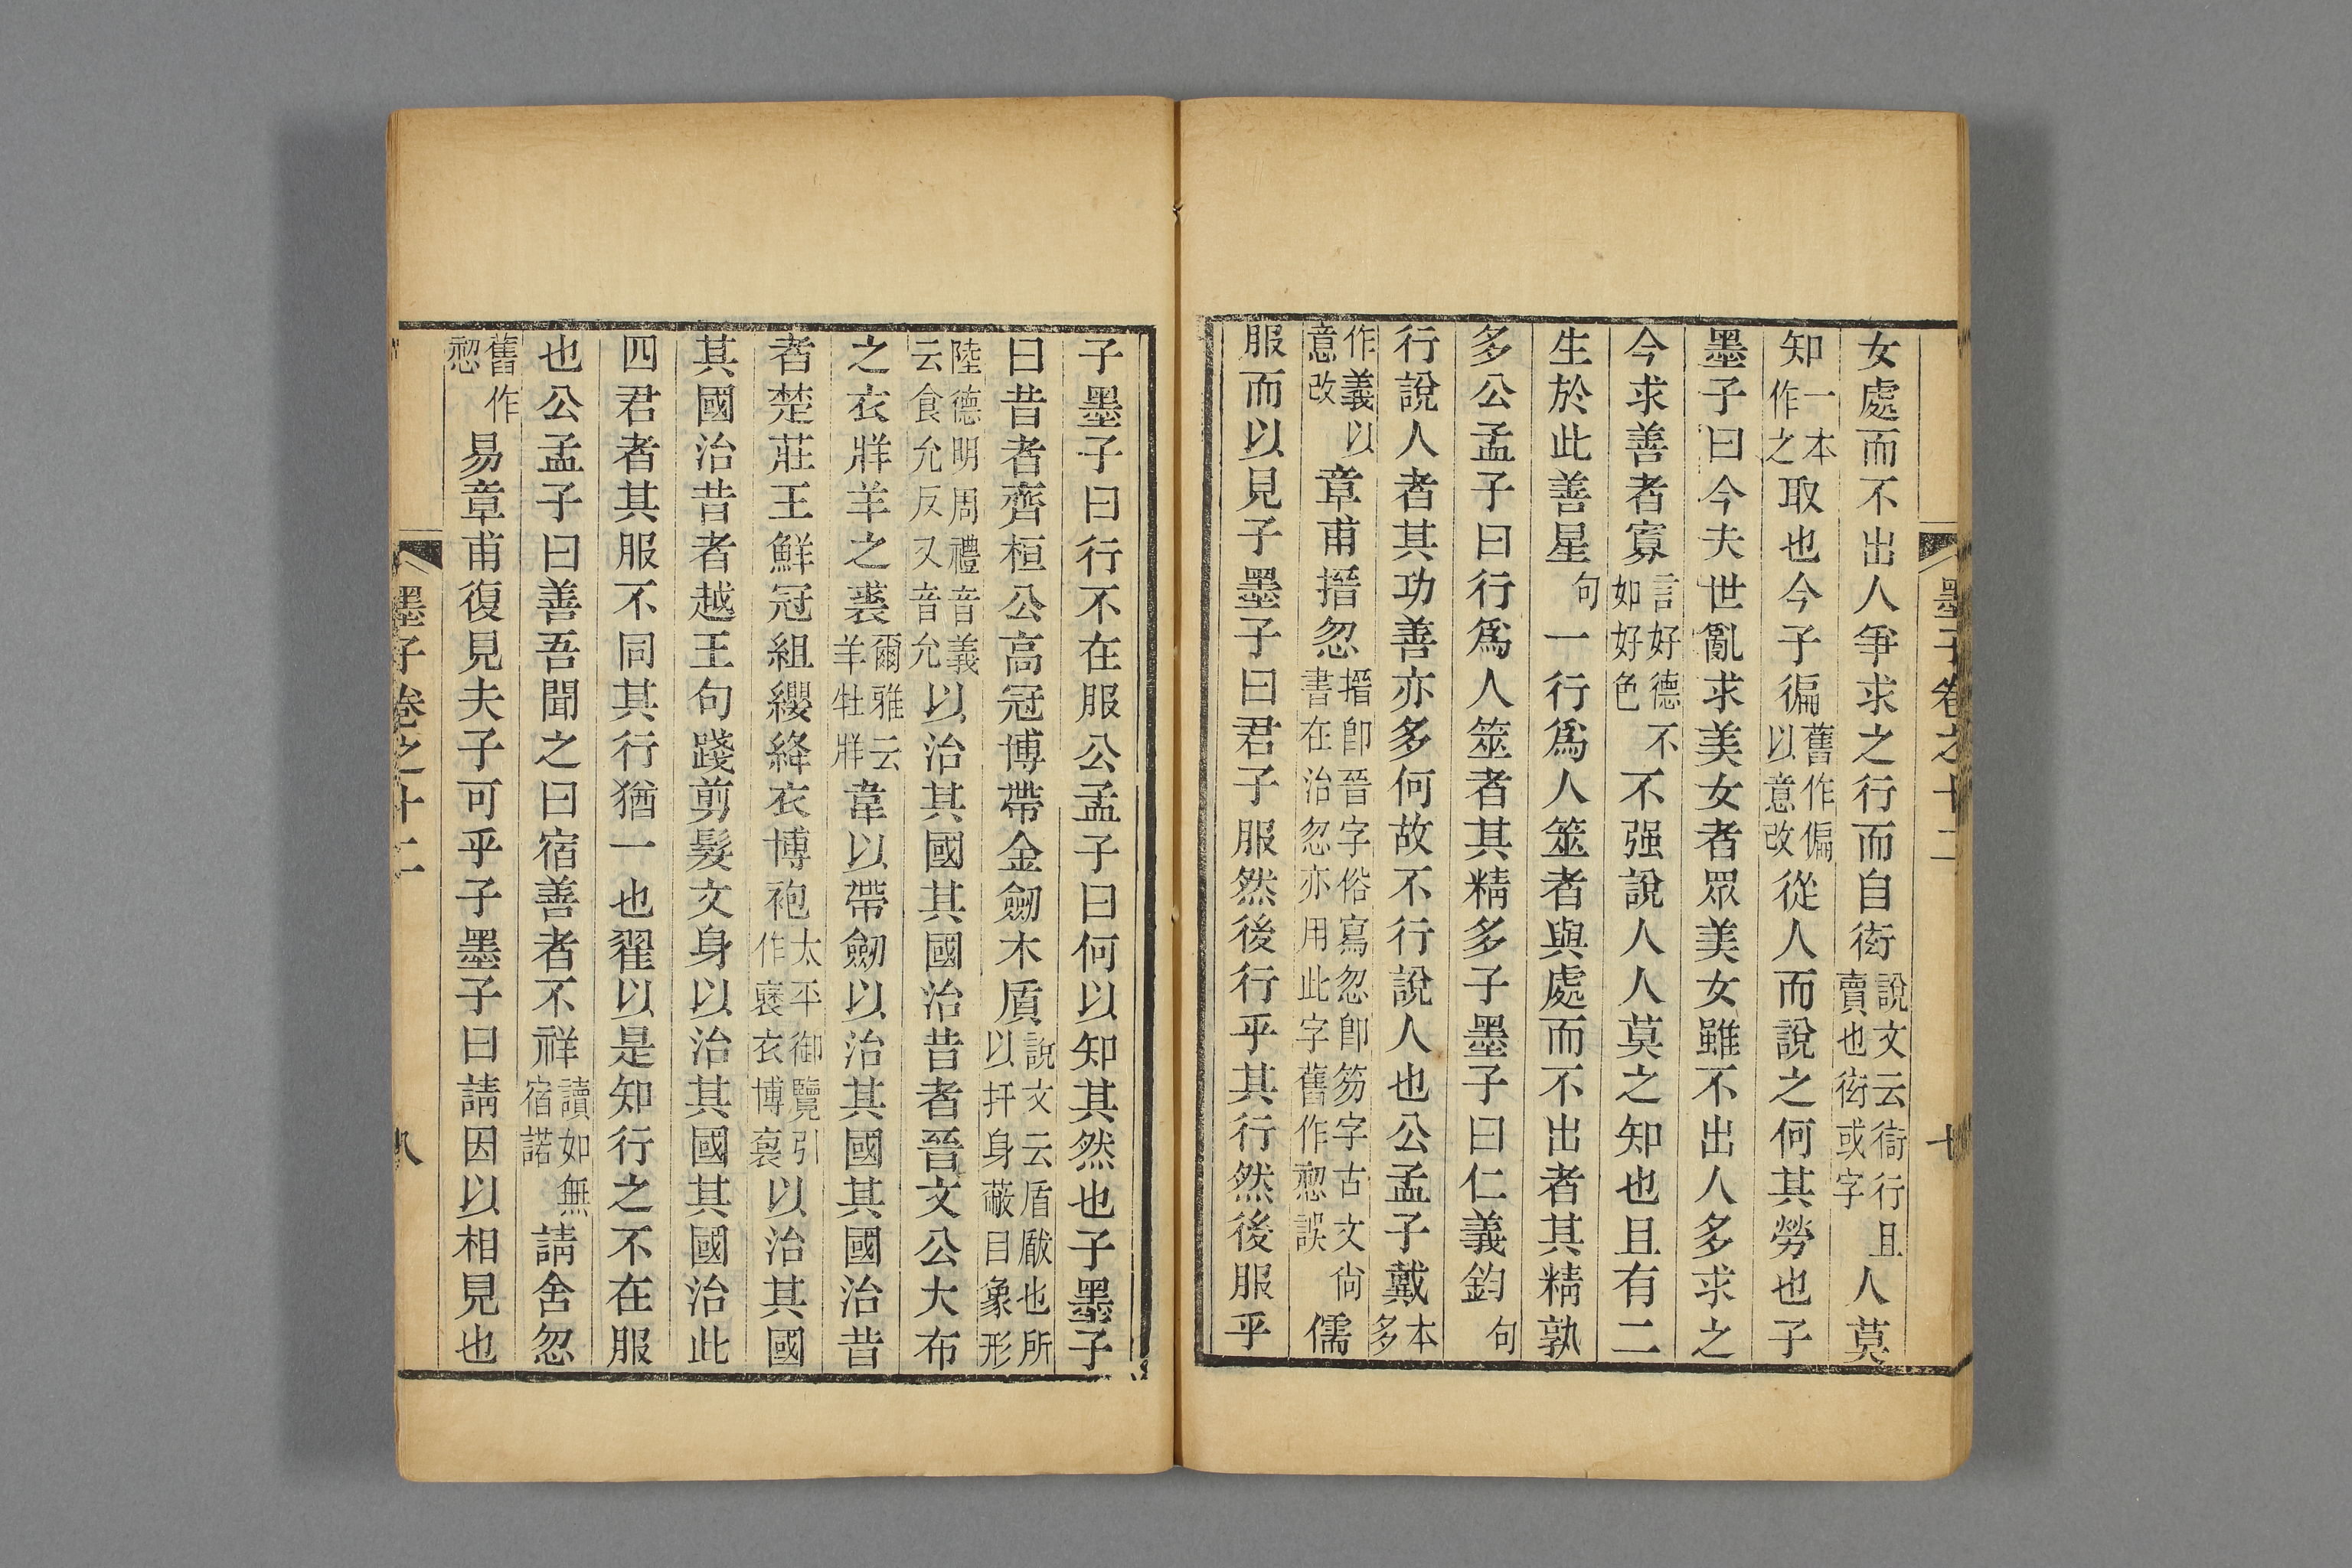 女處而不出人爭求之行而自衒說文云衙行且賣也衒或字人莫
知一本作之取也今子徧舊作偏以意改從人而說之何其勞也子
墨子曰今夫世亂求美女者眾美女雖不出人多求之
今求善者寡言好德不如好色不强說人人莫之知也且有二
生於此善星句一行爲人筮者與處而不出者其精孰
多公孟子曰行爲人筮者其精多子墨子曰仁義鈞句
行說人者其功善亦多何故不行說人也公孟子戴本多
作義以意改章甫搢忽搢卽晉字俗寫忽卽笏字古文尙書在治忽亦用此字舊作㥬誤儒
服而以見子墨子曰君子服然後行乎其行然後服乎
墨子卷之十二
子墨子曰行不在服公孟子曰何以知其然也子墨子
曰昔者齊桓公高冠博帶金劒木盾說文云盾瞂也所以扞身蔽目象形
陸德明周禮音義云食允反又音允以治其國其國治昔者晉文公大布
之衣牂羊之裘爾雅云羊牡牂韋以帶劒以治其國其國治昔
者楚莊王鮮冠組纓絳衣博袍太平御覽引作襃衣博裒以治其國
其國治昔者越王句踐剪髮文身以治其國其國治此
四君者其服不同其行猶一也翟以是知行之不在服
也公孟子曰善吾聞之曰宿善者不祥讀如無宿諾請舍忽
舊作㥬易章甫復見夫子可乎子墨子曰請因以相見也
墨子卷之十二
八